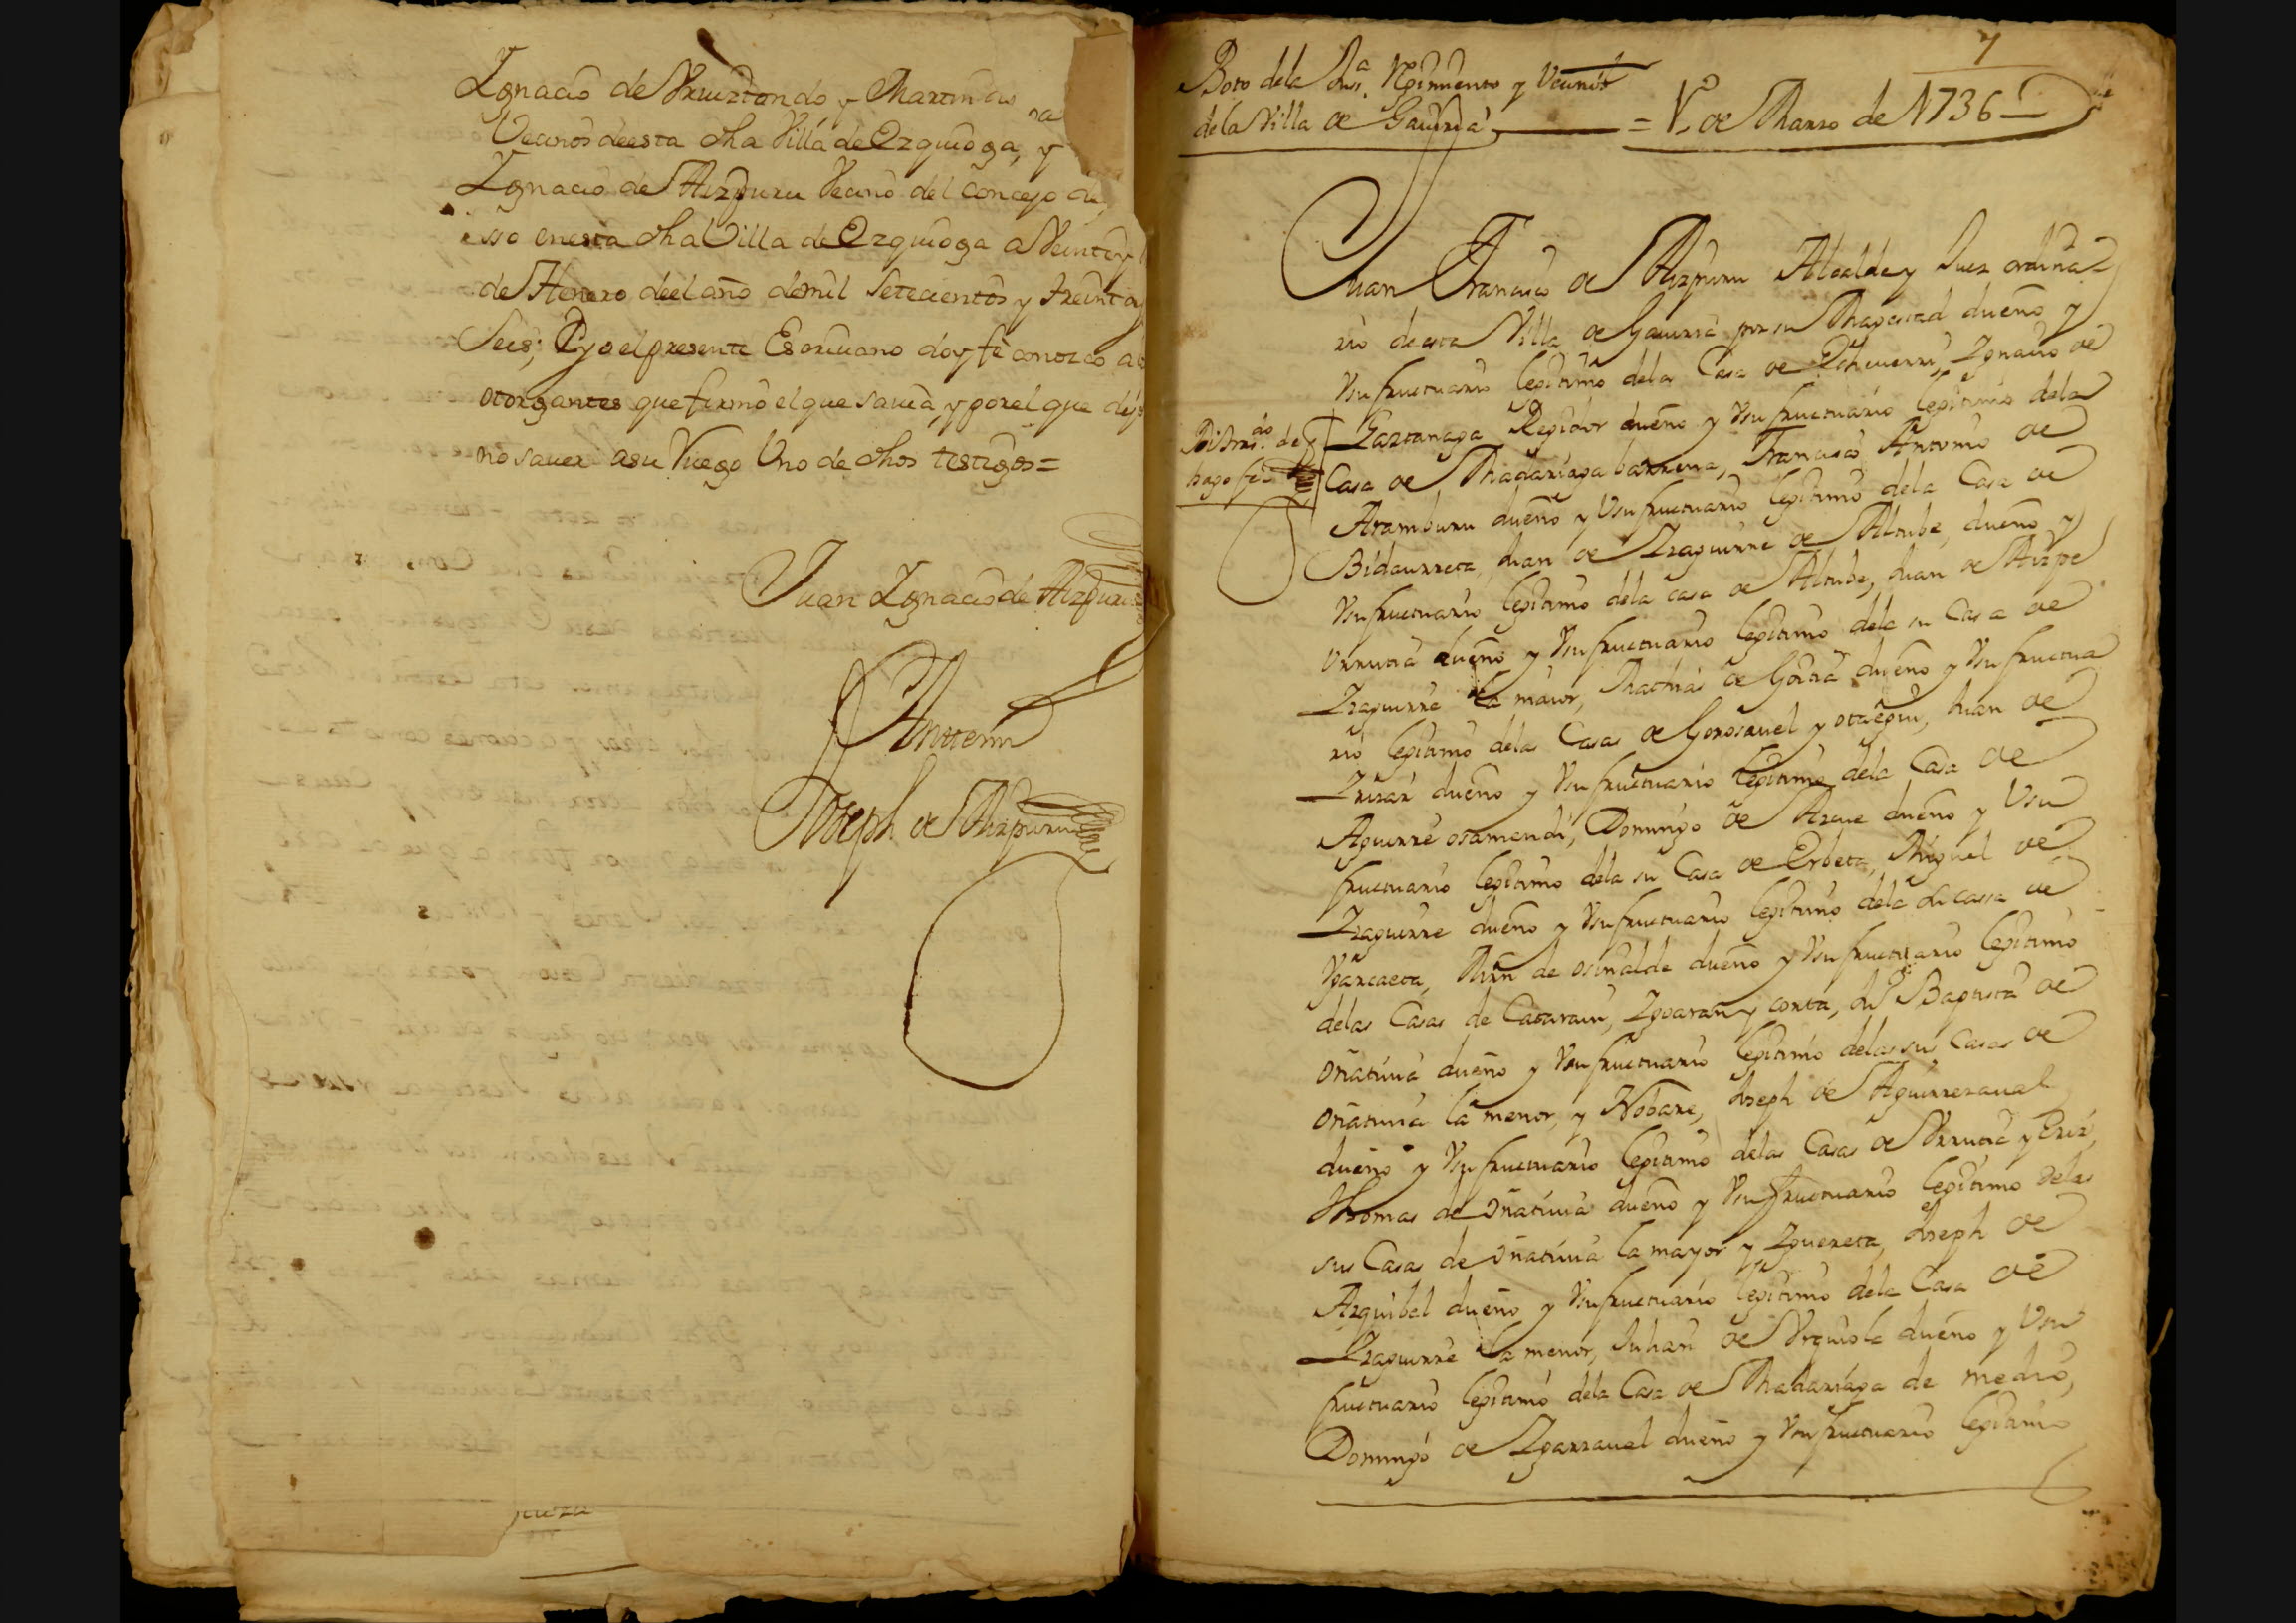 Ygnacio de Vruiztondo y Martin de
Vecinos deesta dha Villa de Ezquioga, y
Ygnacio de Aizpuru Vecino del Concejo de
sso enesta dha Villa de Ezquioga a Veinte y
de Henero deel año demil Setecientos y treinta y
Seis; E yo el presente Escriuano doy fe conozco a
otorgantes que firmò el que sauia, y por el que dijo
no sauer asu Ruego Vno de dhos testigos =
Juan Ygnacio de Aizpuru
Antemi
Joseph de Aizpuru
7
Boto dela Jus.ª Rejimiento y Vecinos
dela Villa de Gauiria = 1.º de Marzo de 1736
Juan Francisco de Aizpuru Alcalde y Juez ordina
rio de esta Villa de Gauiria por su Magestad dueño y
Vsufructuario legitimo dela Casa de Echeuerri, Ygnacio de
Gaztanaga Regidor dueño y Vsufructuario legitimo dela
hago fe
Casa de Madariaga barrena, Francisco Antonio de
Aramburu dueño y Vsufructuario legitimo dela Casa de
Bidaurreta, Juan de Yzaguirre de Altube, dueño y
Vsufructuario legitimo dela casa de Altube, Juan de Aizpe
Vrrutia dueño y Vsufructuario legitimo dela su Casa de
Yzaguirre la maior, Mathias de Goitia dueño y Vsufructua
rio legitimo delas Casas de Gorosauel y otaegui, Juan de
Yrizar dueño y Vsufructuario legitimo dela Casa de
Aguirre osamendi, Domingo de Azcue dueño y Vsu
fructuario legitimo dela su Casa de Erbeta, Miguel de
Yzaguirre dueño y Vsufructuario legitimo dela su cassa de
Ygarzaeta, Mrn de osinalde dueño y Vsufructuario legitimo
delas Casas de Cataraiu, Ygoaran y conta, Juº Baptista de
oñatiuia dueño y Vsufructuario legitimo delas sus Casas de
oñatiuia la menor, y Nobare, Joseph de Aguirrezaual
dueño y Vsufructuario legitimo delas Casas de Vrrutia y Eriz,
Thomas de oñatiuia dueño y Vsufructuario legitimo delas
sus Casas de oñatiuia la mayor y Yguereta, Joseph de
Azquibel dueño y Vsufructuario legitimo dela Casa de
Yzaguirre la menor, Juhan de Vrquiola dueño y Vsu
fructuario legitimo dela Casa de Madariaga de medio,
Domingo de Ygarzaual dueño y Vsufructuario legitimo